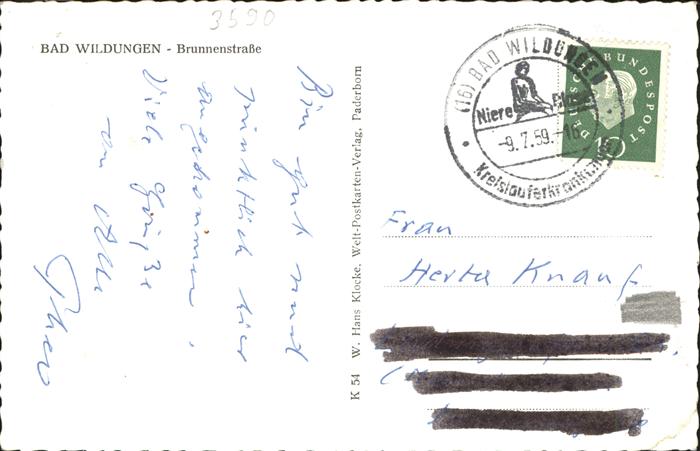 3590
BAD WILDUNGEN - Brunnenstraße
Bin gut und
pünktlich hier
angekommen.
Viele Grüße
an Alle
K 54 W. Hans Klocke, Welt-Postkarten-Verlag, Paderborn
(16) BAD WILDUNGEN
Niere
-9.7.59.-16
Kreislauferkrankungen
DEUTSCHE BUNDESPOST
10
Frau
Herta Knauf